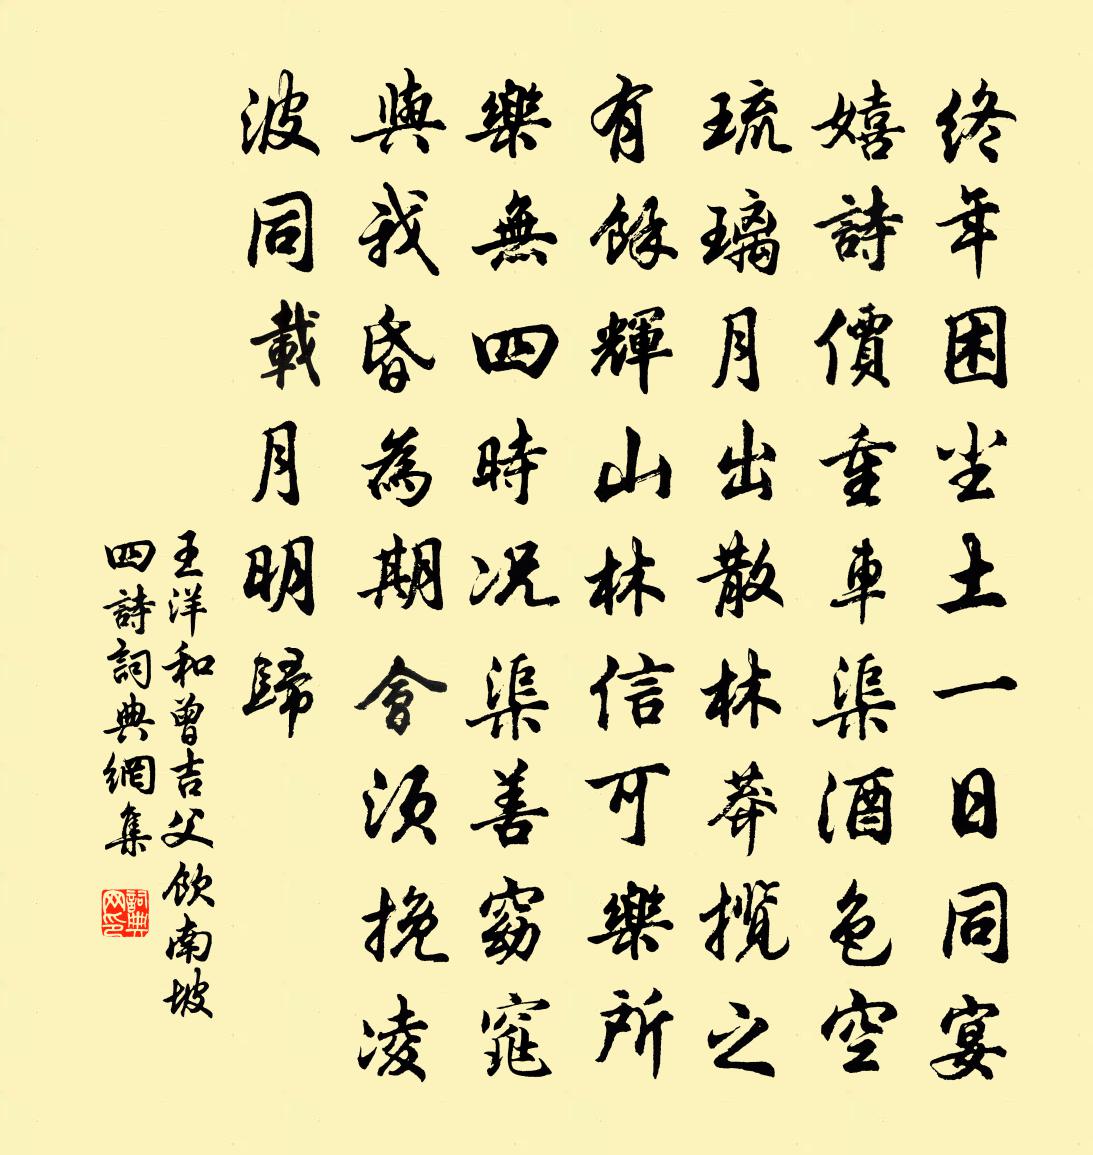 終年困尘土一日同宴
嬉詩價重車渠酒色空
琉璃月出散林莽攬之
有餘輝山林信可樂所
樂無四時况渠善窈窕
與我昏為期會須挽凌
波同載月明歸
王洋和曾吉父飲南坡
四詩詞典網集
詞典
网印